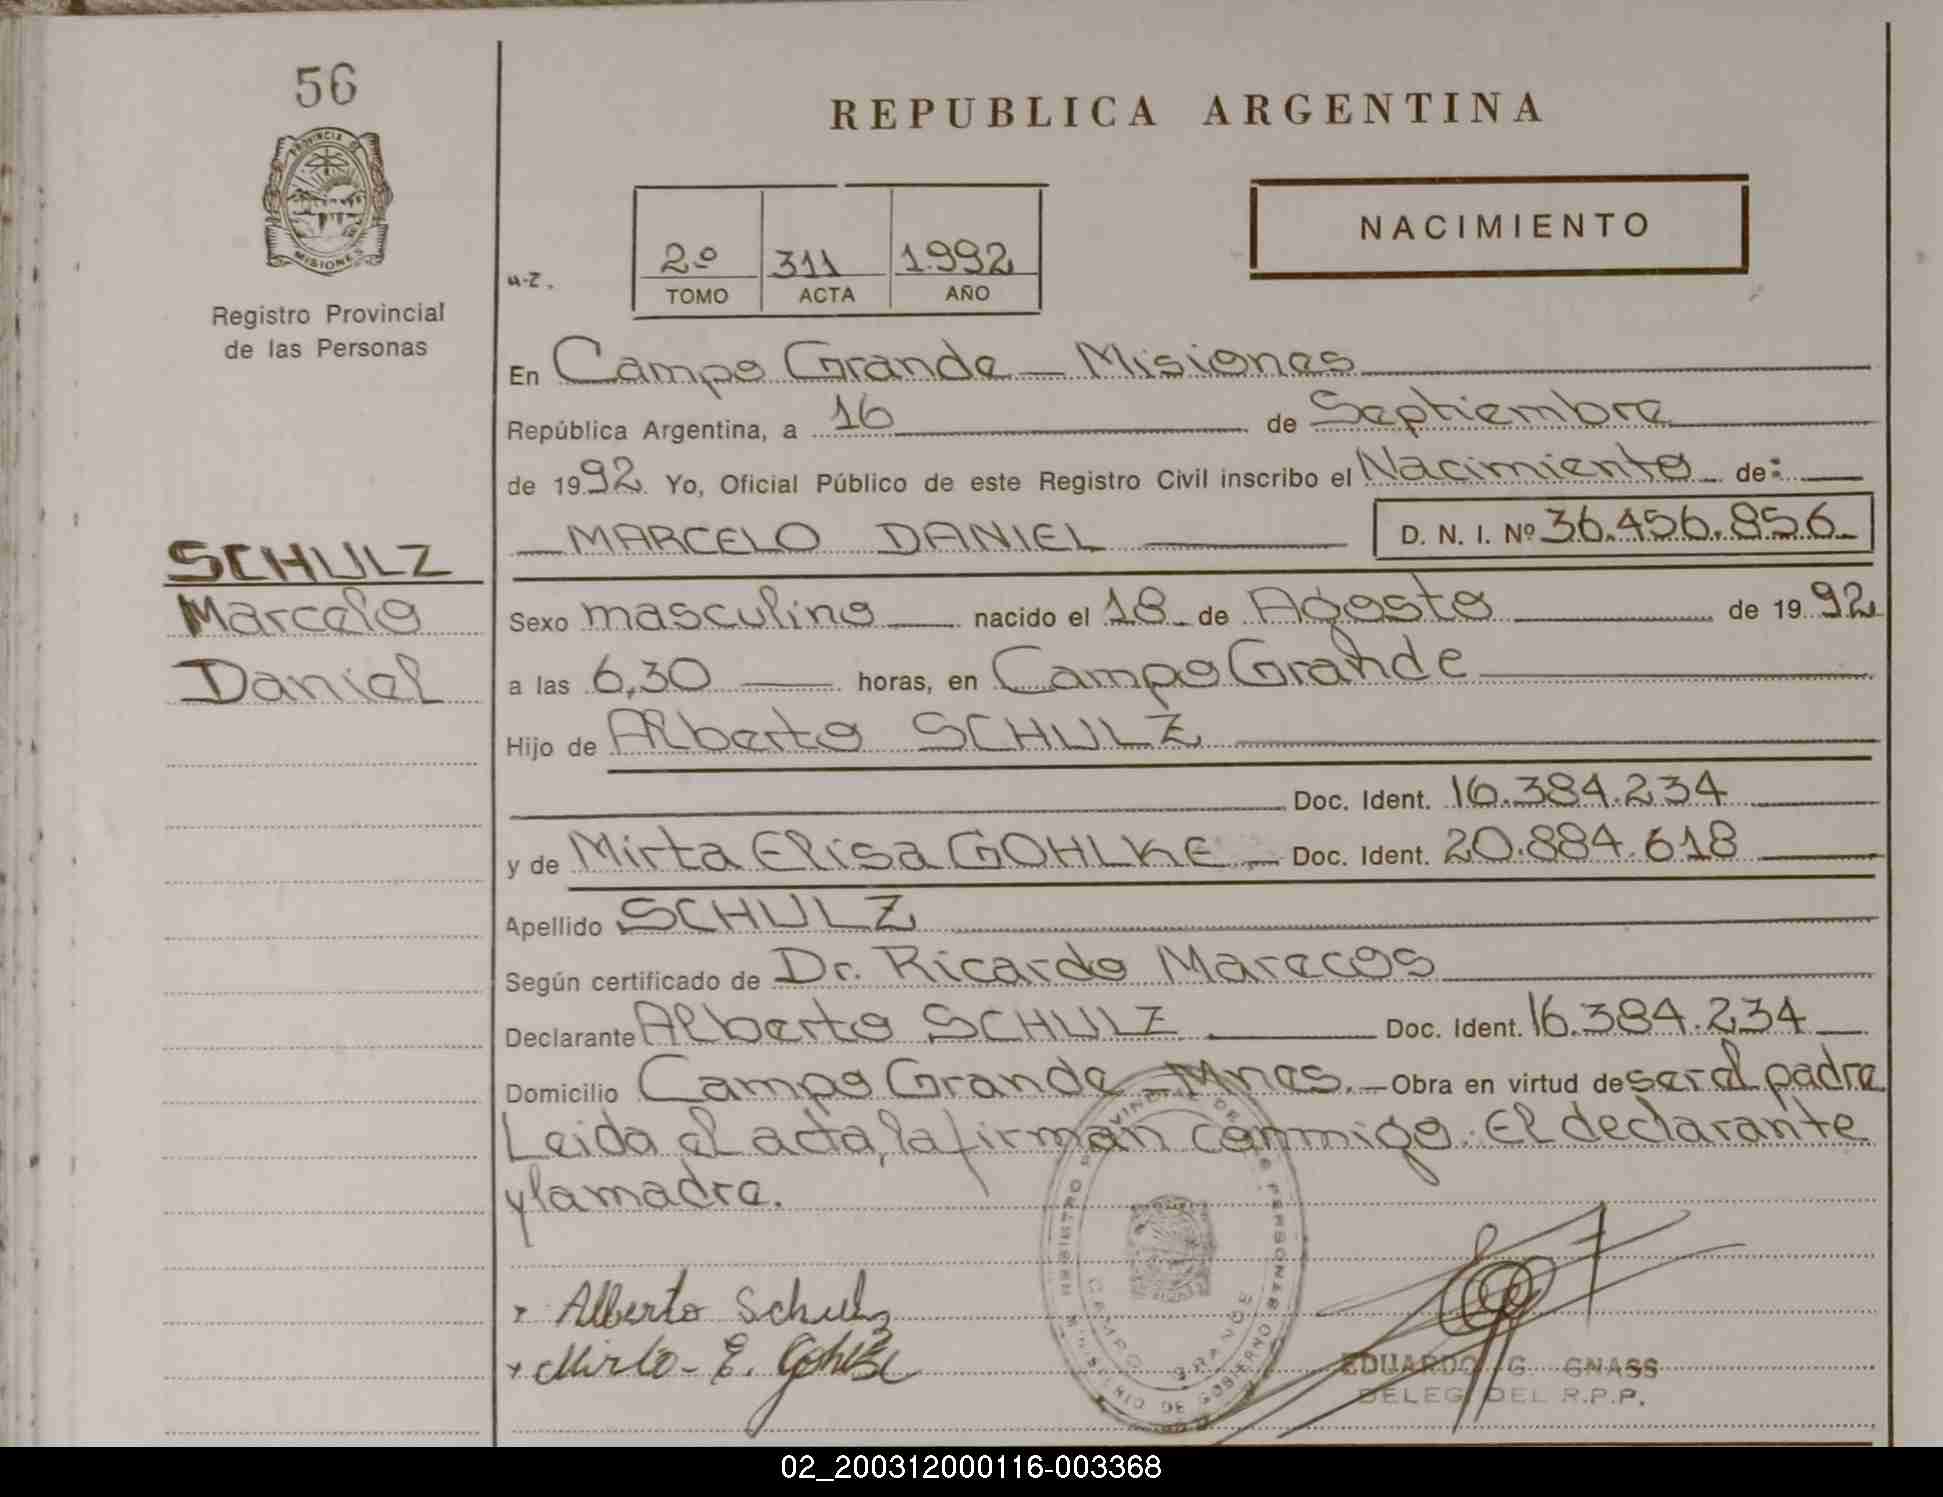 56
PROVINCIA DE
MISIONES
Registro Provincial
de las Personas
SCHULZ
Marcelo
Daniel
REPUBLICA ARGENTINA
NACIMIENTO
2º 311 1.992
TOMO ACTA AÑO
En Campo Grande - Misiones
República Argentina, a 16 de Septiembre
de 1992. Yo, Oficial Público de este Registro Civil inscribo el Nacimiento de:
MARCELO DANIEL D. N. I. Nº 36.456.856
Sexo masculino nacido el 18 de Agosto de 1992
a las 6,30 horas, en Campo Grande
Hijo de Alberto SCHULZ
Doc. Ident. 16.384.234
y de Mirta Elisa GOHLKE Doc. Ident. 20.884.618
Apellido SCHULZ
Según certificado de Dr. Ricardo Marecos
Declarante Alberto SCHULZ Doc. Ident. 16.384.234
Domicilio Campo Grande - Mnes. Obra en virtud de ser el padre
Leida el acta, la firman conmigo. El declarante
y la madre.
Alberto Schulz
Mirta E. Gohlke
CAMPO GRANDE
EDUARDO G. GNASS
DELEG. DEL R.P.P.
02_200312000116-003368